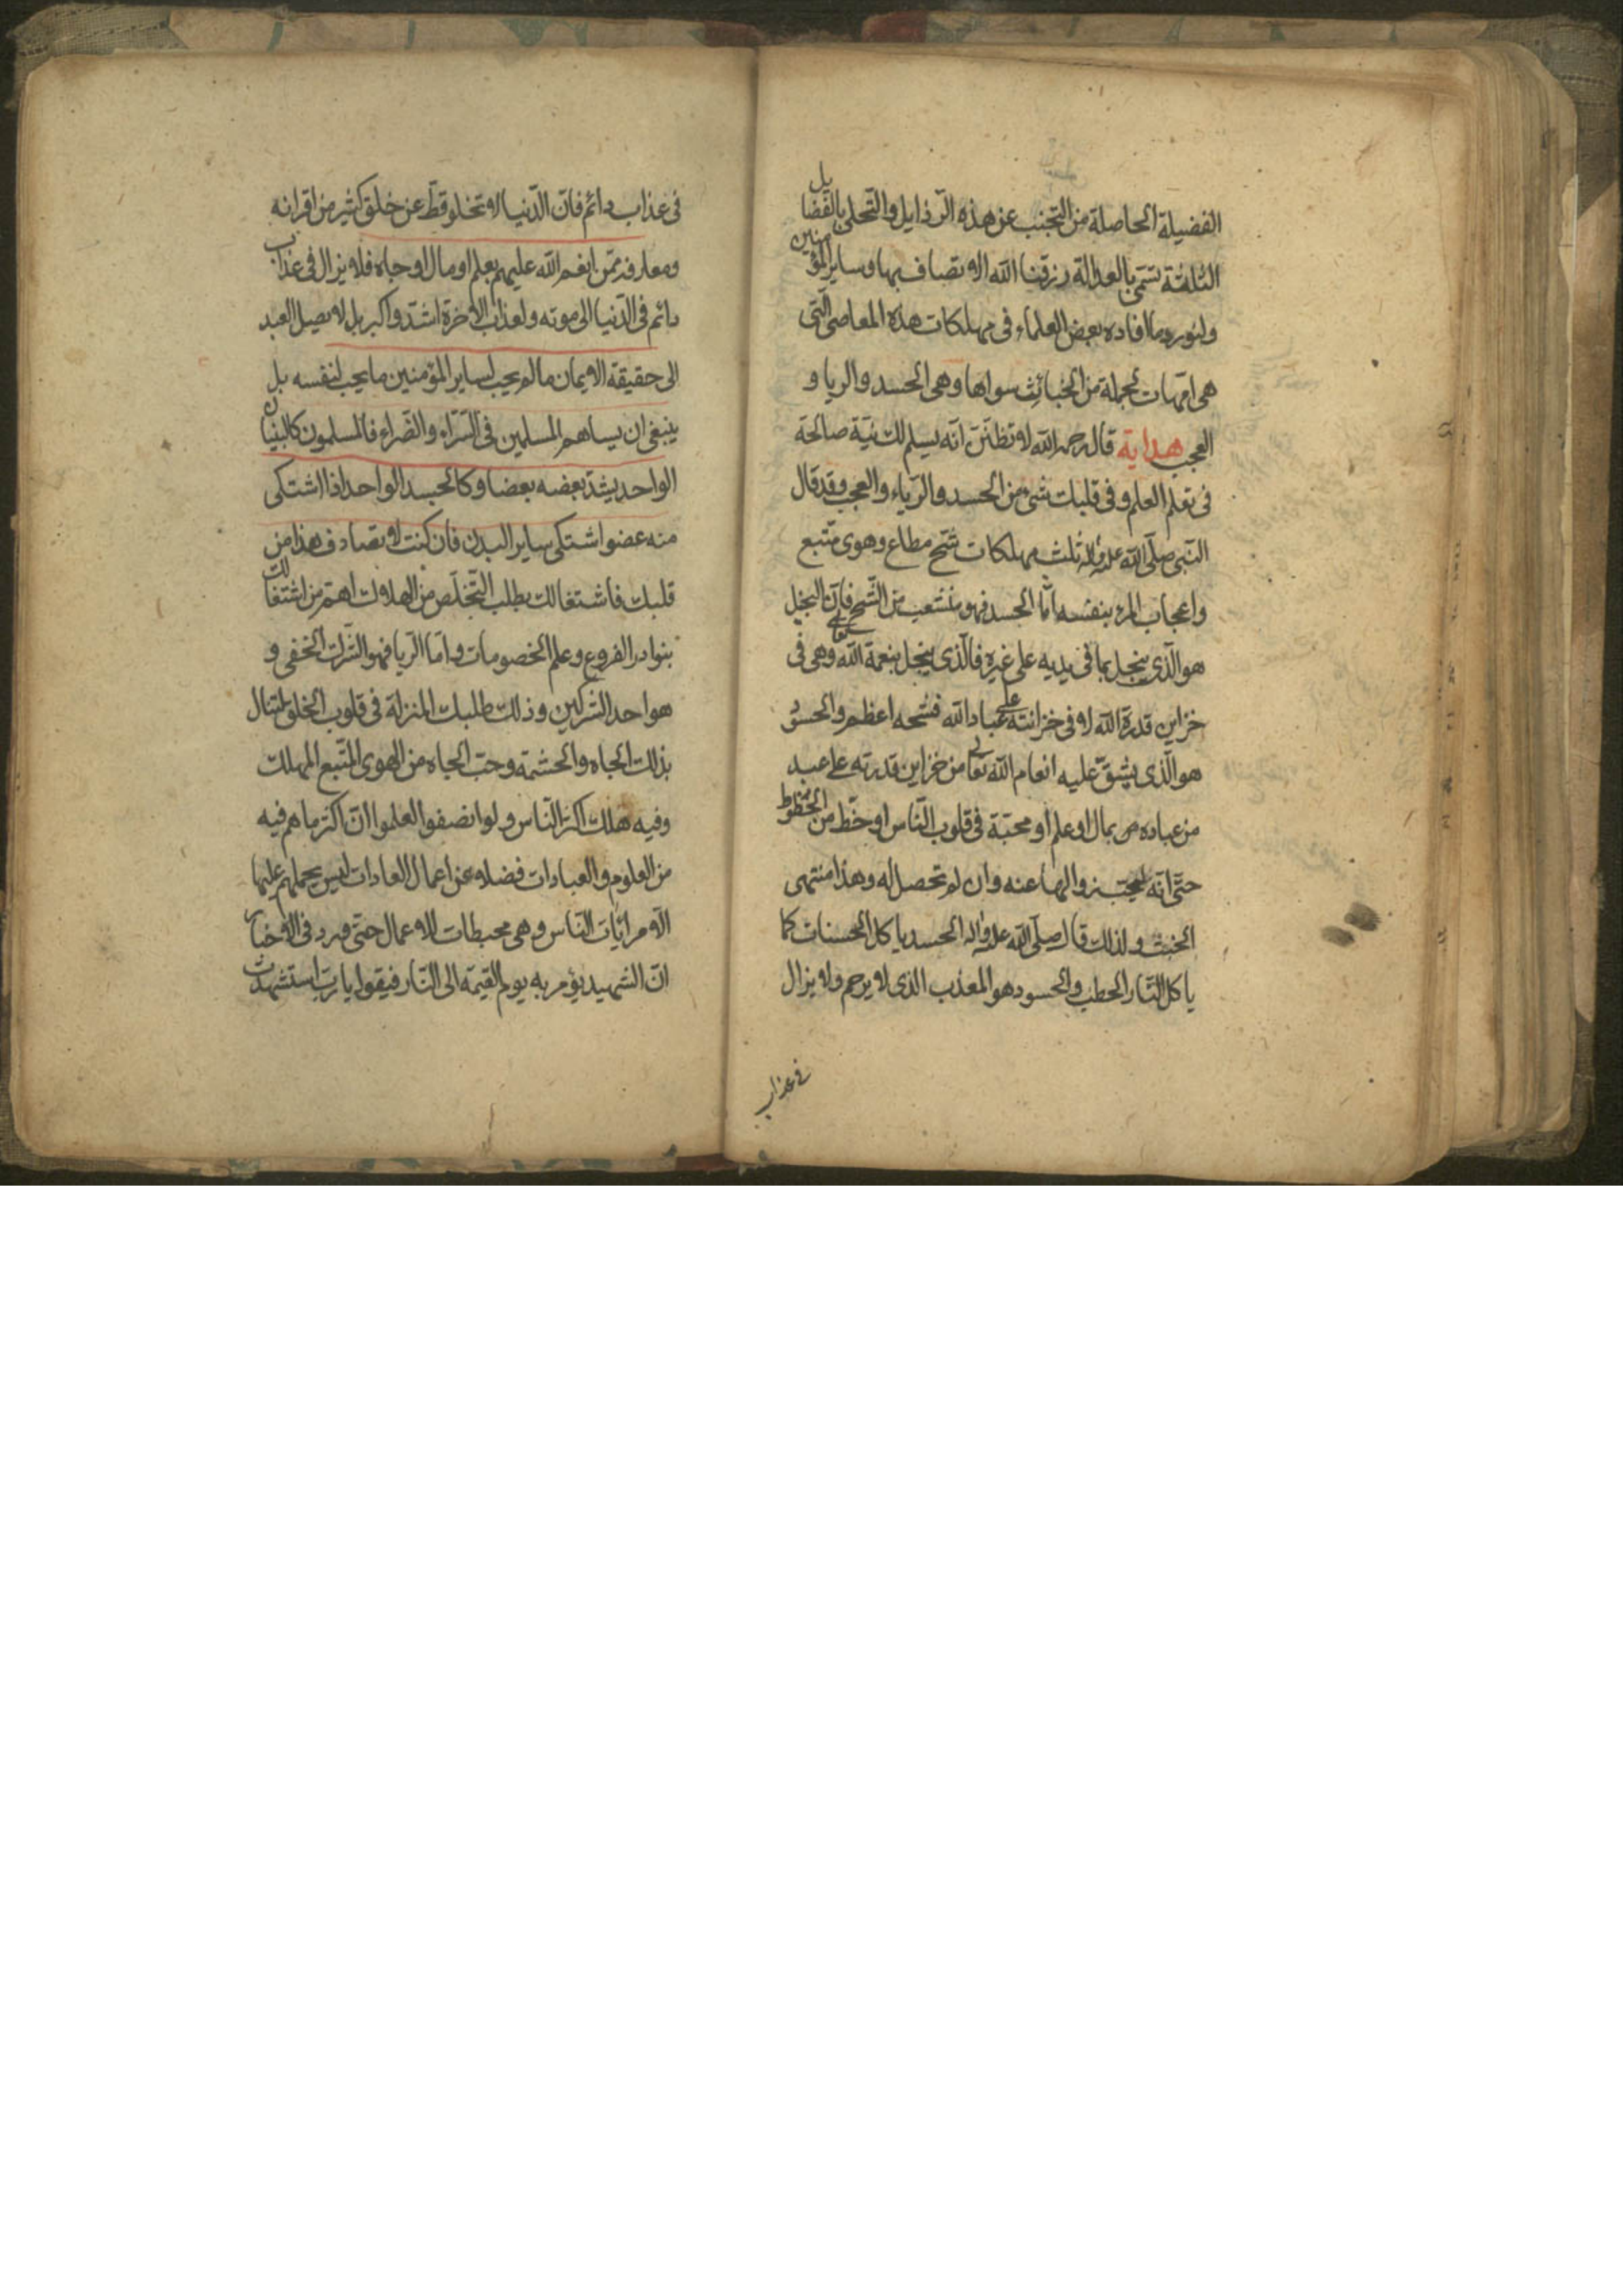 الفضيلة الحاصلة من التجنب عن هذه الرذايل والتحلى بالفضايل
الثلثة تسمى بالعدالة رزقنا الله الاتصاف بها وساير المؤمنين
ولنورد ما افاده بعض العلماء فى مهلكات هذه المعاصى التى
هى امهات لجملة من الخبائث سواها وهى الحسد والريا و
العجب هداية قال رحمه الله لا تظنن انه يسلم لك نية صالحة
فى تعلم العلم وفى قلبك شىء من الحسد والرياء والعجب وقد قال
النبى صلى الله عليه واله ثلث مهلكات شح مطاع وهوى متبع
واعجاب المرء بنفسه اما الحسد فهو متشعب من الشح فان البخيل
هو الذى يبخل بما فى يديه على غيره فالذى يبخل بنعمة الله تعالى وهى فى
خزاين قدرة الله لا فى خزانته على عباد الله فشحه اعظم والحسود
هو الذى يشق عليه انعام الله تعالى من خزاين قدرته على عبد
من عباده بمال او علم او محبة فى قلوب الناس او حظ من الحظوظ
حتى انه ليحب زوالها عنه وان لم تحصل له وهذا منتهى
الخبث ولذلك قال صلى الله عليه واله الحسد ياكل الحسنات كما
ياكل النار الحطب والحسود هو المعذب الذى لا يرحم ولا يزال
فى عذاب
فى عذاب دائم فان الدنيا لا تخلو قط عن خلق كثير من اقرانه
ومعارفه ممن انعم الله عليهم بعلم او مال او جاه فلا يزال فى عذاب
دائم فى الدنيا الى موته ولعذاب الاخرة اشد واكبر بل لا يصل العبد
الى حقيقة الايمان ما لم يحب لساير المؤمنين ما يحب لنفسه بل
ينبغى ان يساهم المسلمين فى السراء والضراء فالمسلمون كالبنيان
الواحد يشد بعضه بعضا وكالجسد الواحد اذا اشتكى
منه عضو اشتكى ساير البدن فان كنت لا تصادف هذا من
قلبك فاشتغالك بطلب التخلص من الهلاك اهم من اشتغالك
بنوادر الفروع وعلم الخصومات واما الريا فهو الشرك الخفى و
هو احد الشركين وذلك طلبك المنزلة فى قلوب الخلق لتنال
بذلك الجاه والحشمة وحب الجاه من الهوى المتبع المهلك
وفيه هلك اكثر الناس ولو انصفوا لعلموا ان اكثر ما هم فيه
من العلوم والعبادات فضلا عن اعمال العادات ليس يحملهم عليها
الا مراياة الناس وهى محبطات للاعمال حتى ورد فى الاخبار
ان الشهيد يؤمر به يوم القيمة الى النار فيقول يا رب استشهدت